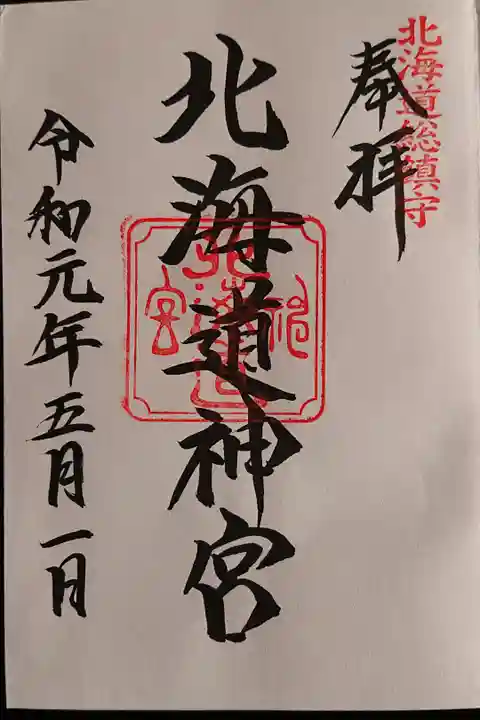 北海道総鎮守
奉拝
北海道神宮
北海道神宮
令和元年五月一日